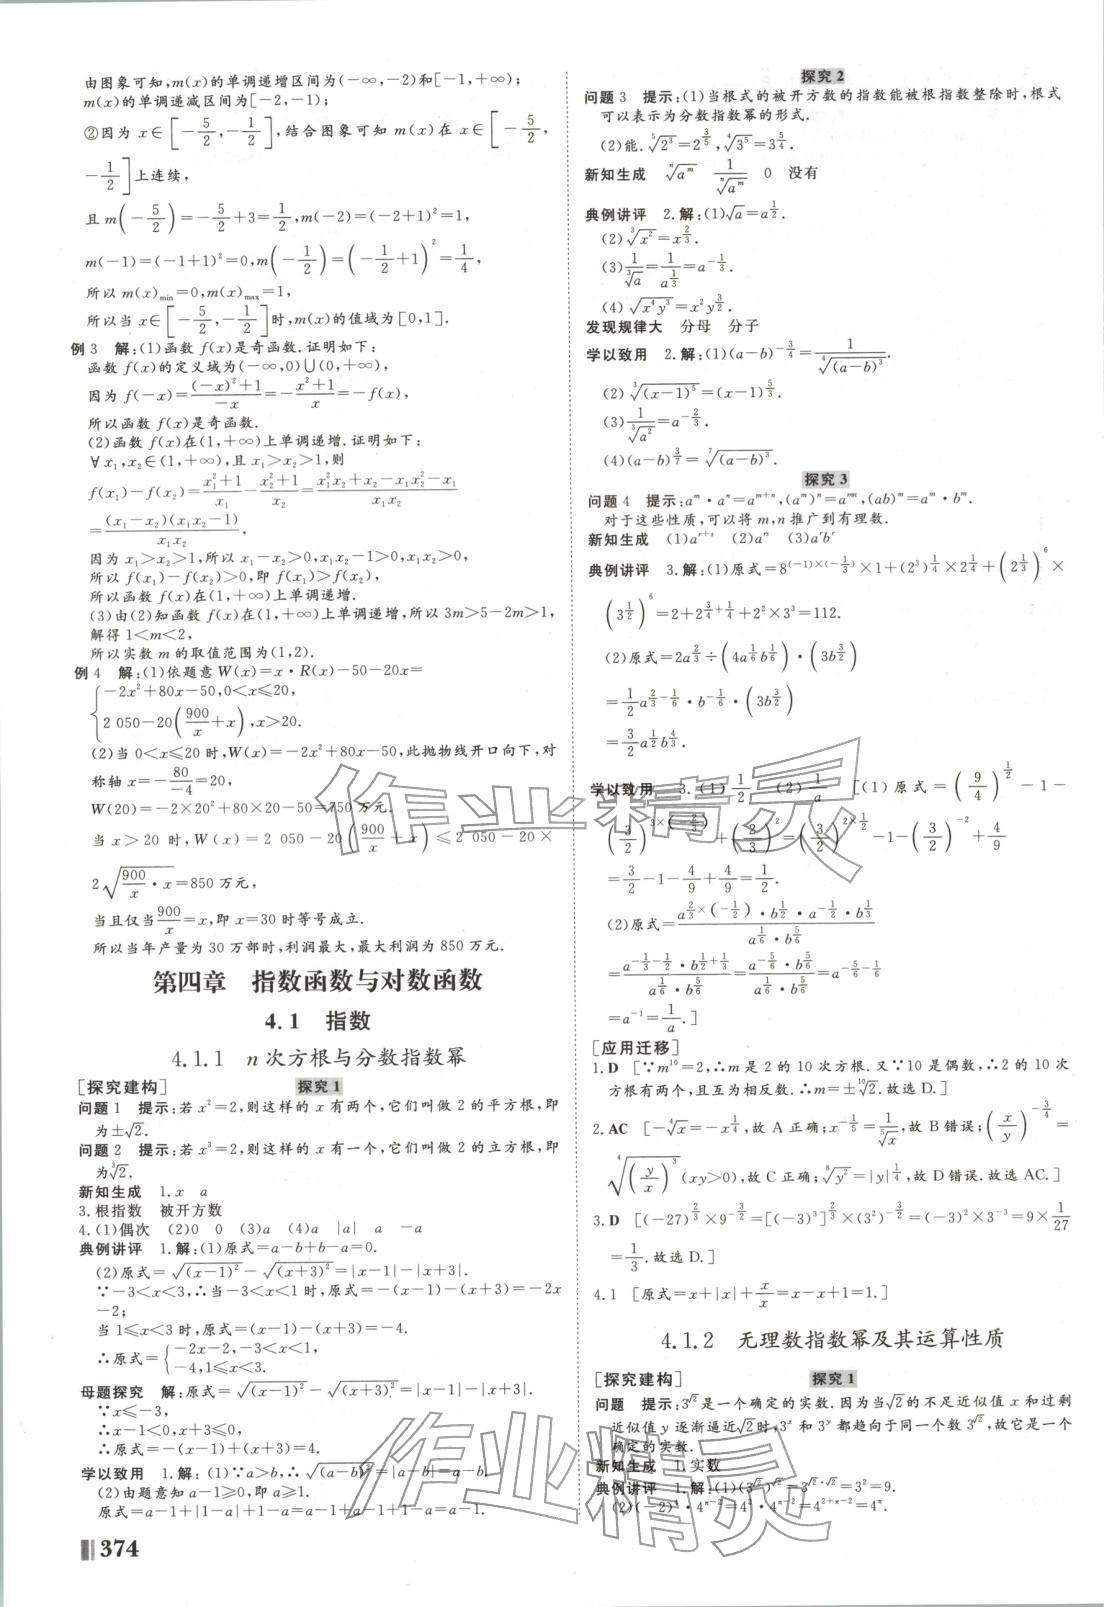 由图象可知,m(x)的单调递增区间为(-∞,-2)和[-1,+∞);
m(x)的单调递减区间为[-2,-1);
②因为 x∈[-5/2,-1/2],结合图象可知 m(x)在 x∈[-5/2,
-1/2]上连续,
且 m(-5/2)=-5/2+3=1/2,m(-2)=(-2+1)²=1,
m(-1)=(-1+1)²=0,m(-1/2)=(-1/2+1)²=1/4,
所以 m(x)min=0,m(x)max=1,
所以当 x∈[-5/2,-1/2]时,m(x)的值域为[0,1].
例 3 解:(1)函数 f(x)是奇函数.证明如下:
函数 f(x)的定义域为(-∞,0)∪(0,+∞),
因为 f(-x)=((-x)²+1)/(-x)=-(x²+1)/x=-f(x),
所以函数 f(x)是奇函数.
(2)函数 f(x)在(1,+∞)上单调递增.证明如下:
∀x₁,x₂∈(1,+∞),且 x₁>x₂>1,则
f(x₁)-f(x₂)=(x₁²+1)/x₁-(x₂²+1)/x₂=(x₁²x₂+x₂-x₁x₂²-x₁)/(x₁x₂)
=(x₁-x₂)(x₁x₂-1)/(x₁x₂),
因为 x₁>x₂>1,所以 x₁-x₂>0,x₁x₂-1>0,x₁x₂>0,
所以 f(x₁)-f(x₂)>0,即 f(x₁)>f(x₂),
所以函数 f(x)在(1,+∞)上单调递增.
(3)由(2)知函数 f(x)在(1,+∞)上单调递增,所以 3m>5-2m>1,
解得 1<m<2,
所以实数 m 的取值范围为(1,2).
例 4 解:(1)依题意 W(x)=x·R(x)-50-20x=
{-2x²+80x-50,0<x≤20,
2 050-20(900/x+x),x>20.
(2)当 0<x≤20 时,W(x)=-2x²+80x-50,此抛物线开口向下,对
称轴 x=-80/-4=20,
W(20)=-2×20²+80×20-50=750 万元,
当 x>20 时,W(x)=2 050-20(900/x+x)≤2 050-20×
2√(900/x·x)=850 万元,
当且仅当900/x=x,即 x=30 时等号成立.
所以当年产量为 30 万部时,利润最大,最大利润为 850 万元.
第四章 指数函数与对数函数
4.1 指数
4.1.1 n 次方根与分数指数幂
[探究建构] 探究 1
问题 1 提示:若 x²=2,则这样的 x 有两个,它们叫做 2 的平方根,即
为±√2.
问题 2 提示:若 x³=2,则这样的 x 有一个,它们叫做 2 的立方根,即
为∛2.
新知生成 1.x a
3.根指数 被开方数
4.(1)偶次 (2)0 0 (3)a (4)a |a| a -a
典例讲评 1.解:(1)原式=a-b+b-a=0.
(2)原式=√(x-1)²-√(x+3)²=|x-1|-|x+3|.
∵-3<x<3,∴当-3<x<1 时,原式=-(x-1)-(x+3)=-2x
-2;
当 1≤x<3 时,原式=(x-1)-(x+3)=-4.
∴原式={-2x-2,-3<x<1,
-4,1≤x<3.
母题探究 解:原式=√(x-1)²-√(x+3)²=|x-1|-|x+3|.
∵x≤-3,
∴x-1<0,x+3≤0,
∴原式=-(x-1)+(x+3)=4.
学以致用 1.解:(1)∵a>b,∴√(a-b)²=|a-b|=a-b.
(2)由题意知 a-1≥0,即 a≥1.
原式=a-1+|1-a|+1-a=a-1+a-1+1-a=a-1.
374
探究 2
问题 3 提示:(1)当根式的被开方数的指数能被根指数整除时,根式
可以表示为分数指数幂的形式.
(2)能.⁵√2³=2^(3/5),⁴√3⁵=3^(5/4).
新知生成 ⁿ√aᵐ 1/ⁿ√aᵐ 0 没有
典例讲评 2.解:(1)√a=a^(1/2).
(2)∛x²=x^(2/3).
(3)1/∛a=1/a^(1/3)=a^(-1/3).
(4)√x⁴y³=x²y^(3/2).
发现规律大 分母 分子
学以致用 2.解:(1)(a-b)^(-3/4)=1/⁴√(a-b)³.
(2)∛(x-1)⁵=(x-1)^(5/3).
(3)1/∛a²=a^(-2/3).
(4)(a-b)^(3/7)=⁷√(a-b)³.
探究 3
问题 4 提示:aᵐ·aⁿ=aᵐ⁺ⁿ,(aᵐ)ⁿ=aᵐⁿ,(ab)ᵐ=aᵐ·bᵐ.
对于这些性质,可以将 m,n 推广到有理数.
新知生成 (1)a^(r+s) (2)a^(rs) (3)a^r b^r
典例讲评 3.解:(1)原式=8^((-1)×(-1/3))×1+(2³)^(1/4)×2^(1/4)+(2^(1/3))⁶×
(3^(1/2))⁶=2+2^(3/4+1/4)+2²×3³=112.
(2)原式=2a^(2/3)÷(4a^(1/6)b^(1/6))·(3b^(3/2))
=1/2a^(2/3-1/6)·b^(-1/6)·(3b^(3/2))
=3/2a^(1/2)b^(4/3).
学以致用 3.(1)1/2 (2)1/a [(1)原式=(9/4)^(1/2)-1-
(3/2)^(3×(-2/3))+(2/3)²=(3/2)^(2×1/2)-1-(3/2)^(-2)+4/9
=3/2-1-4/9+4/9=1/2.
(2)原式=(a^(2/3×(-1/2))·b^(1/2)·a^(-1/2)·b^(1/3))/(a^(1/6)·b^(5/6))
=(a^(-1/3-1/2)·b^(1/2+1/3))/(a^(1/6)b^(5/6))=(a^(-5/6)·b^(5/6))/(a^(1/6)·b^(5/6))=a^(-5/6-1/6)
=a⁻¹=1/a.]
[应用迁移]
1.D [∵m¹⁰=2,∴m 是 2 的 10 次方根.又∵10 是偶数,∴2 的 10 次
方根有两个,且互为相反数.∴m=±¹⁰√2.故选 D.]
2.AC [-⁴√x=-x^(1/4),故 A 正确;x^(-1/5)=1/⁵√x,故 B 错误;(x/y)^(-3/4)=
⁴√(y/x)³(xy>0),故 C 正确;⁸√y²=|y|^(1/4),故 D 错误.故选 AC.]
3.D [(-27)^(2/3)×9^(-3/2)=[(-3)³]^(2/3)×(3²)^(-3/2)=(-3)²×3⁻³=9×1/27
=1/3.故选 D.]
4.1 [原式=x+|x|+x/x=x-x+1=1.]
4.1.2 无理数指数幂及其运算性质
[探究建构] 探究 1
问题 提示:3^√2是一个确定的实数.因为当√2的不足近似值 x 和过剩
近似值 y 逐渐逼近√2时,3ˣ 和 3ʸ 都趋向于同一个数 3^√2,故它是一个
确定的实数.
新知生成 1.实数
典例讲评 1.解:(1)(3^√2)^√2=3^(√2×√2)=3²=9.
(2)(-2)⁴·4^(π-2)=4²·4^(π-2)=4^(2+π-2)=4^π.
作业精灵
作业精灵